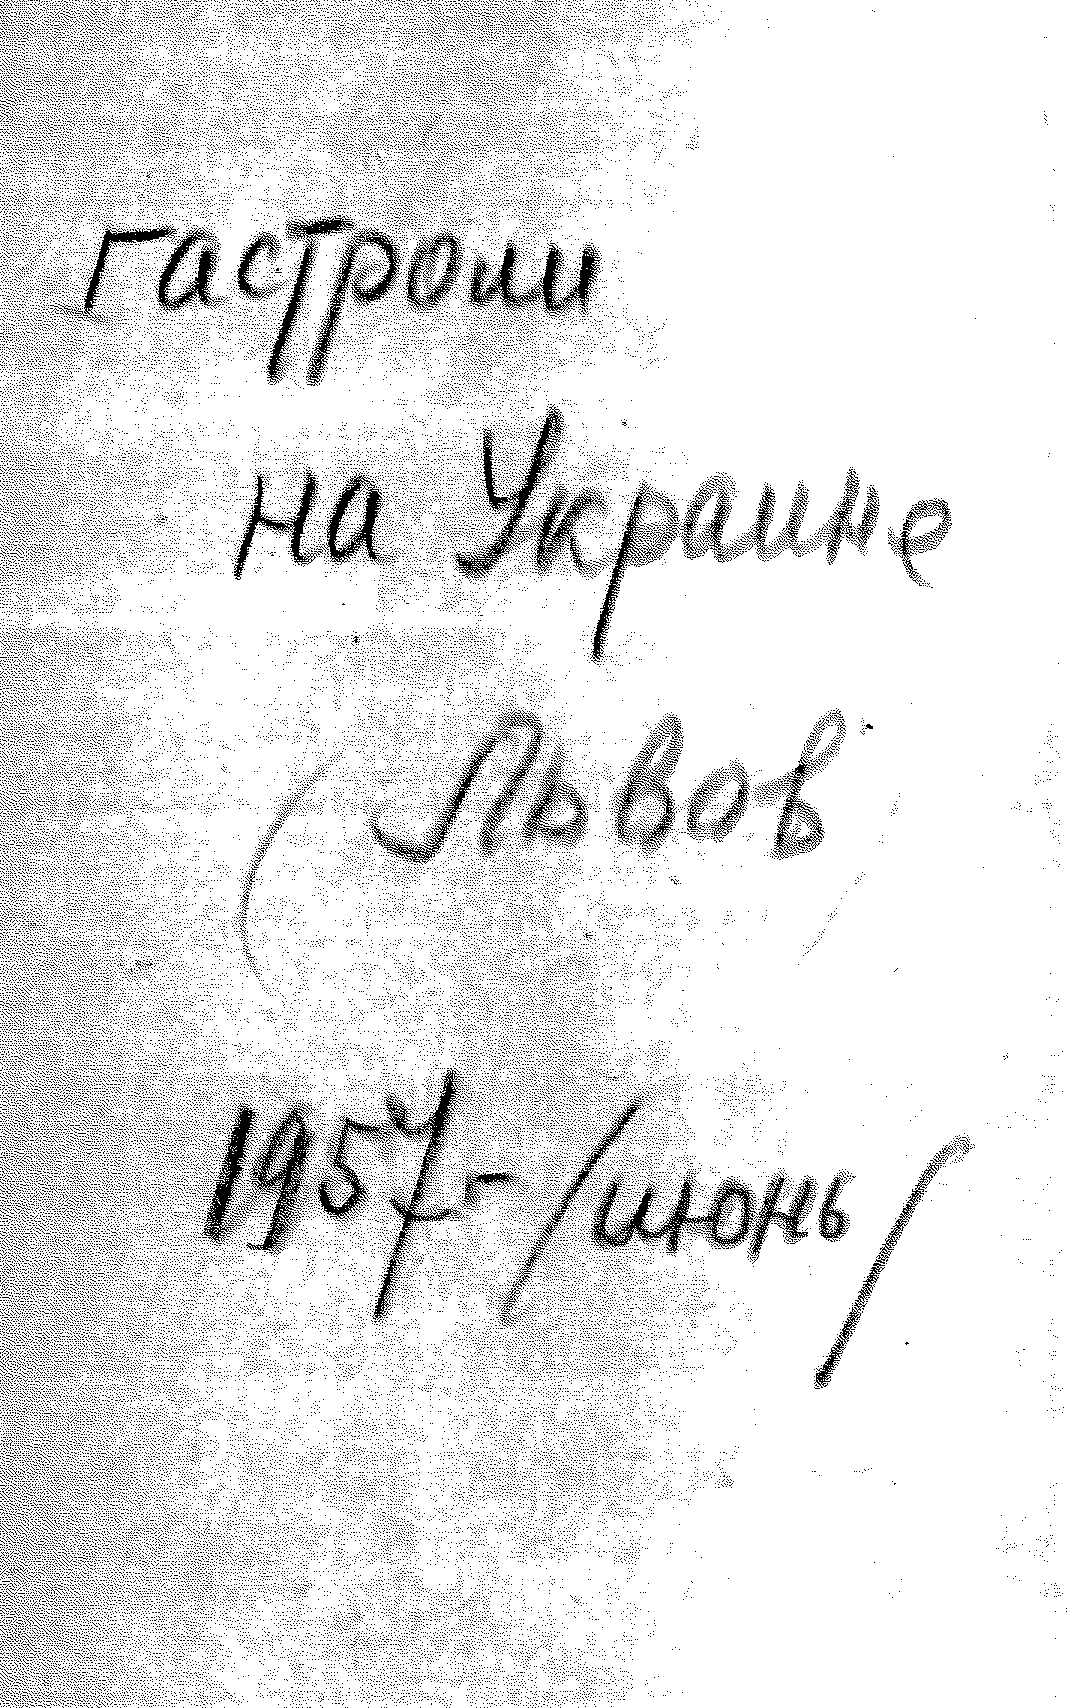 гастроли
на Украине
Львов
1957- /июнь/